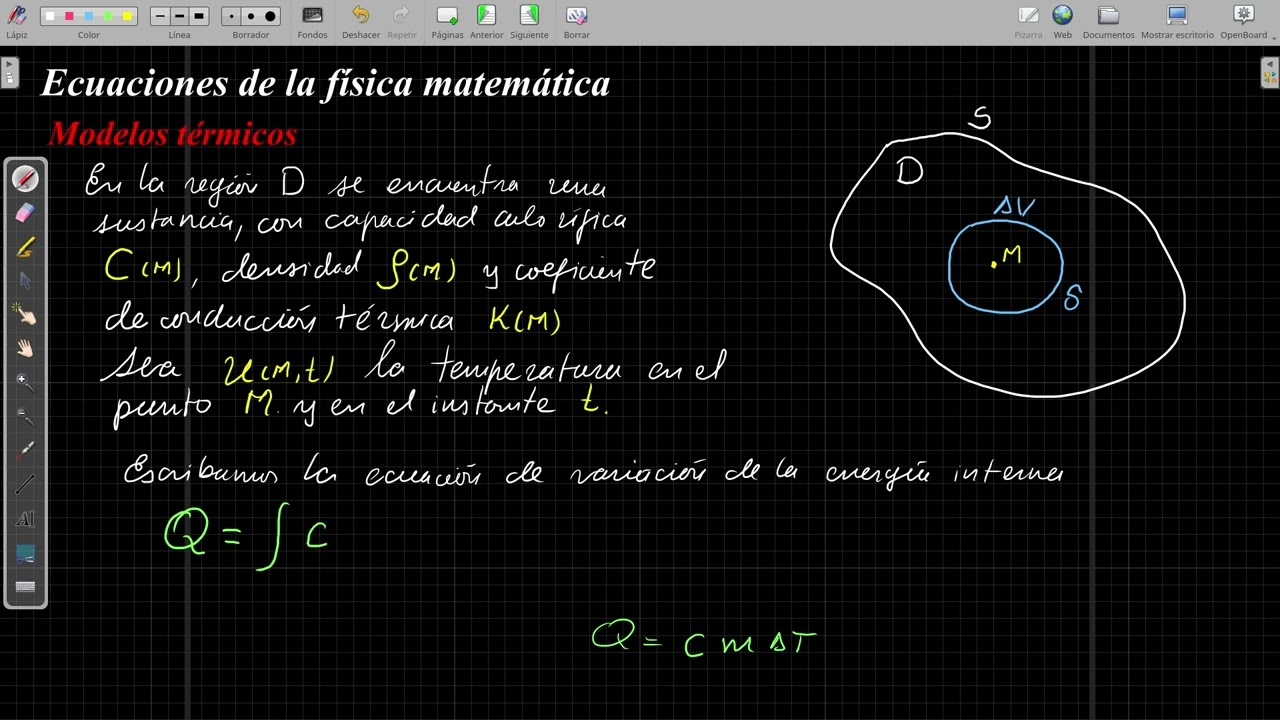 Lápiz Color Línea Borrador Fondos Deshacer Repetir Páginas Anterior Siguiente Borrar Pizarra Web Documentos Mostrar escritorio OpenBoard
Ecuaciones de la física matemática
Modelos térmicos
En la región D se encuentra una
sustancia, con capacidad calorífica
C(M), densidad ρ(M) y coeficiente
de conducción térmica K(M)
Sea u(M,t) la temperatura en el
punto M. y en el instante t.
Escribamos la ecuación de variación de la energía interna
Q = ∫ C
Q = C m ΔT
S
D
ΔV
M
δ